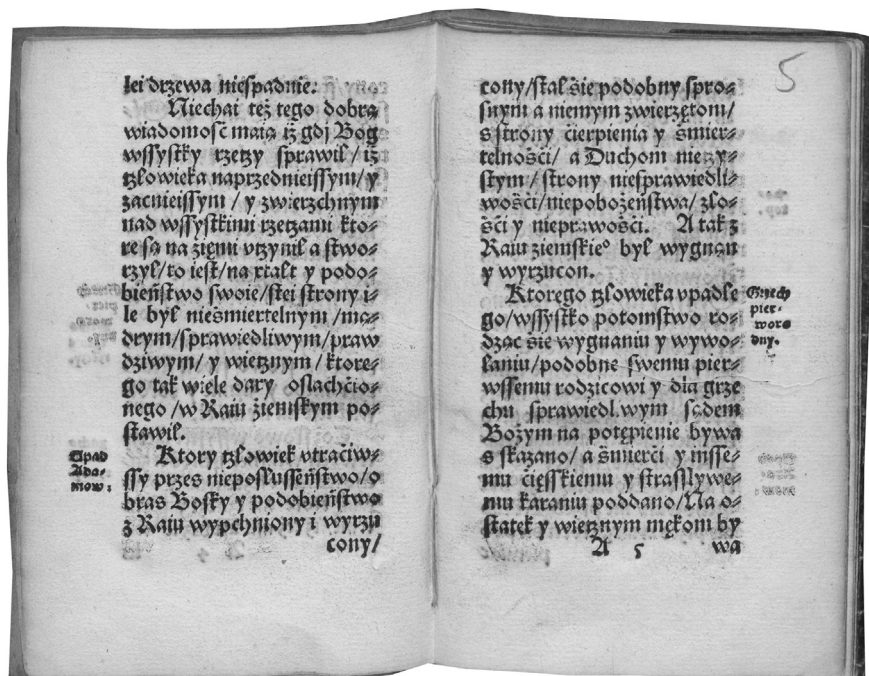 lei drzewa niespadnie.
Niechai też tego dobrą
wiadomosć maią iż gdj Bog
wssystky rzetzy sprawil / iż
tzlowieka naprzednieissym / y
zacnieissym / y zwierzchnym
nad wssystkimi rzetzami kto⸗
re są na ziemi vtzynil a stwo⸗
rzyl / to iest / na xtalt y podo⸗
bieństwo swoie / stei strony i⸗
le byl nieśmiertelnym / mą⸗
drym / sprawiedliwym / praw
dziwym / y wietznym / ktore⸗
go tak wiele dary oslachćio⸗
nego / w Raiu źiemskym po⸗
stawil.
Upad
Ada⸗
mow:
Ktory tzlowiek vtraćiw⸗
ssy przes nieposlusseństwo / o
bras Bosky y podobieństwo
z Raiu wypchniony i wyrzu
cony /
5
cony / stal śie podobny spro⸗
snym a niemym zwierzętom /
s strony ćierpienia y śmier⸗
telnośći / a Duchom nietzy⸗
stym / strony niesprawiedli⸗
wośći / niepobożeństwa / zlo⸗
śći y nieprawośći. A tak z
Raiu ziemskieº byl wygnan
y wyrzucon.
Ktorego tzlowieka vpadle
go / wssystko potomstwo ro⸗
dząc śie wygnaniu y wywo⸗
laniu / podobne swemu pier⸗
wssemu rodzicowi y dla grze
chu sprawiedl.wym sądem
Bożym na potępienie bywa
s skazano / a śmierći y insse⸗
mu ćięsskiemu y strassywe⸗
mu karaniu poddano / Na o⸗
statek y wietznym mękom by
Grzech
pier⸗
woro
dny.
A 5 wa